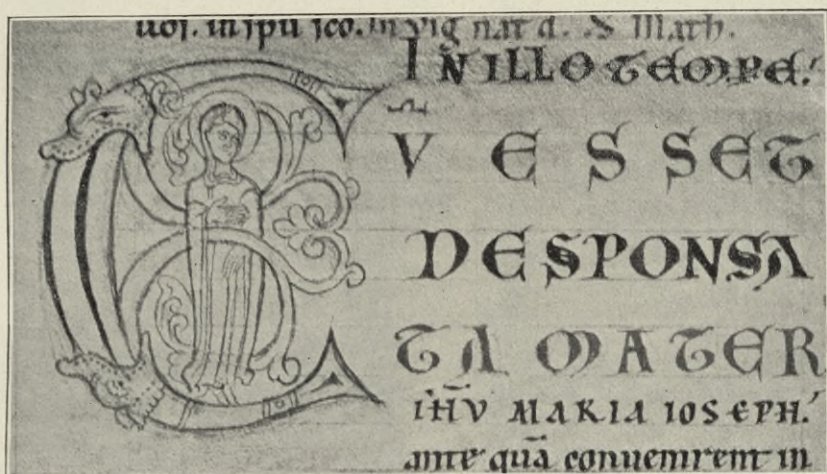 uos. in spu sco. In vig nat d. S Math.
IN̄ ILLO TEMPE.
C V̄ ESSET
DESPONSA
TA MATER
IHV̄ MARIA IOSEPH.
ante quā conuenirent in